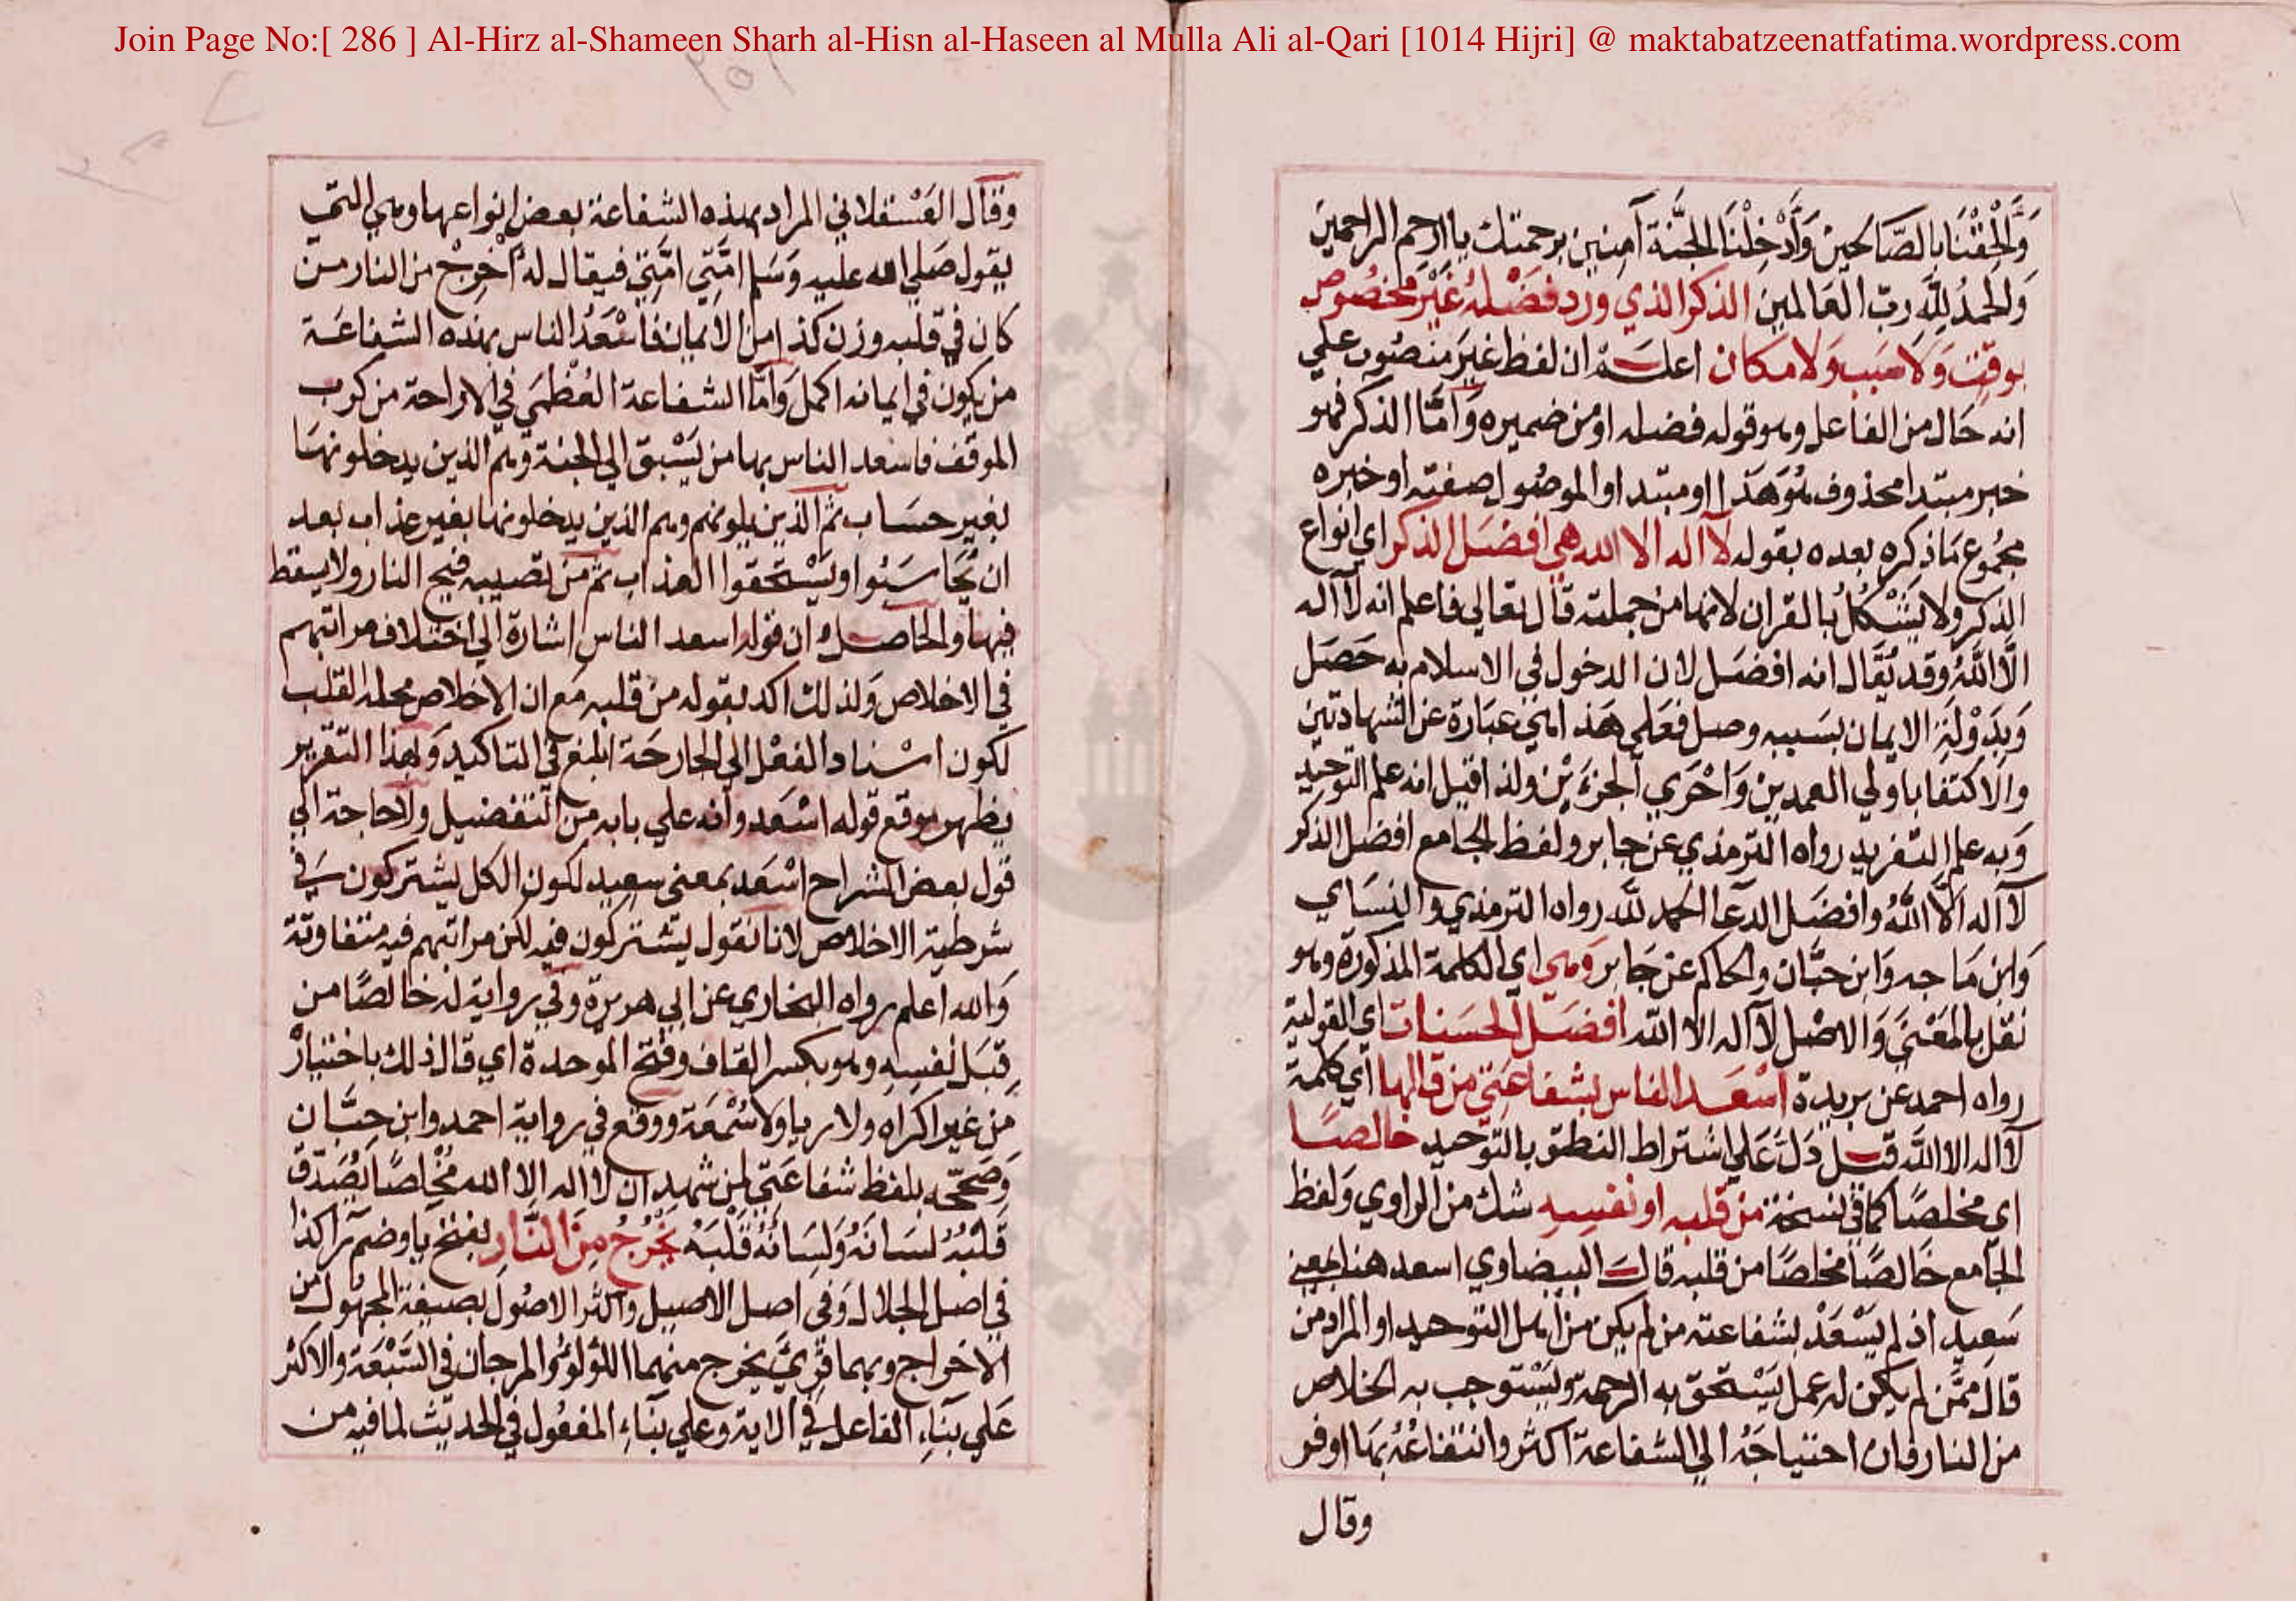 Join Page No:[ 286 ] Al-Hirz al-Shameen Sharh al-Hisn al-Haseen al Mulla Ali al-Qari [1014 Hijri] @ maktabatzeenatfatima.wordpress.com
وَأَلْحِقْنَا بِالصَّالحِينَ وَأَدْخِلْنَا الجَنَّةَ آمِنِين برحمتك يا ارحم الراحمين
وَالحمدُ لِلَّهِ ربّ العَالمين الذكر الذي ورد فضلهُ غيْرَ مخصُوصٍ
بوقتٍ وَلا سَبب وَلا مكان اعلم ان لفظ غيرَ منصُوب علي
انه حَال من الفاعل وهو قوله فضله او من ضميره وَامَّا الذكر فهو
خبر مبتدا محذوف هُوَ هَذا او مبتدا والموصُول صفته او خبره
مجمُوع مَا ذكره بعده بقوله لا اله الا الله هي افضل الذكر اي انواع
الذكر ولا يشكلُ بالقران لانها من جملته قال تعالي فاعلم انه لا اله
الَّا اللَّهُ وقد يُقال انه افضَل لان الدخول في الاسلام به حَصَل
وَبدَوْلَةِ الايمان بسَببه وصل فعَلي هَذا هي عبَارة عن الشهادتين
والاكتفا باولي العمدين وَاحْرَي الجزءَيْن ولذا قيل انه علم التوحيد
وَبه علم التفريد رواه الترمذي عن جابر ولفظ الجامع افضل الذكر
لا اله الَّا اللَّهُ وافضَل الدعا الحمد للَّه رواه الترمذي والنسَاي
وَابن مَاجه وَابن حبَّان والحاكم عن جَابر وَهي اي الكلمة المذكورة وهو
نقل بالمَعْنَي وَالاصْل لا اله الا الله افضَل الحسَنات اي القولية
رواه احمد عن بريدة اسْعَد الناس بشفاعَتي من قالها اي كلمة
لا اله الا اللَّه قيل دَلَّ عَلي اشتراط النطق بالتوحيد خالصًا
اي مخلصًا كما في نسخة من قلبه او نفسِهِ شك من الراوي وَلفظ
الجَامع خَالصًا مخلصًا من قلبه قال البيضاوي اسعد هنا بمعني
سَعِيد اذ لم يسْعَدْ بشفاعته من لم يكن من اهل التوحيد او المراد من
قال ممَّن لم يكن له عمل يَسْتحق به الرحمة ويَسْتوجب به الخلاص
من النار فان احتياجَهُ الي الشفاعة اكثر وانتفاعُهُ بهَا اوفر
وقال
وقال العَسْقلاني المراد بهذه الشفاعة بعض انواعها وهي التي
يقول صَلي الله عليه وَسَلم امَّتي امَّتي فيقال له أَخْرِجْ من النار من
كان في قلبه وزن كذا من الايمان فاَسْعَدُ الناس بهذه الشفاعَة
من يكون في ايمانه اكمل وَامَّا الشفاعة العُظْمَي في الاراحة من كرب
الموقف فاسعد الناس بها من يَسْبق الي الجنة وهم الذين يدخلونهَا
بغير حسَاب ثم الذين يلونهم وهم الذين يدخلونها بغير عذاب بعد
ان يُحَاسَبُوا ويَسْتحقوا العذاب ثم من تصيبه فيح النار ولا يسقط
فيها والحاصل ان قوله اسعد الناس اشارة الي اختلاف مراتبهم
في الاخلاص وَلذلك اكد بقوله من قلبه مَع ان الاخلاص محله القلب
لكون اسْناد الفعْل الي الجارحَة ابلغ في التاكيد وَلهذا التقرير
يظهر موقع قوله اسْعَد وانه علي بابه من التفضيل ولا حاجة الي
قول بعض الشراح اسْعَد بمعني سعيد لكون الكل يشتركون في
شرطية الاخلاص لانا نقول يشتركون فيه لكن مراتبهم فيه متفاوتة
وَالله اعلم رواه البخاري عن ابي هريرة وفي رواية له خالصًا من
قِبَل نفسِهِ وهو بكسر القاف وفتح الموحدة اي قال ذلك باختيار
مِن غير اكراه ولا ريا ولا سُمْعَة ووقع في رواية احمد وابن حبَّان
وَصَححّه بلفظ شفاعَتي لمن شهد ان لا اله الا الله مُخْلِصًا يُصَدّق
قَلْبُهُ لسَانَهُ وَلِسَانُهُ قَلْبَهُ يَخْرُجُ مِنَ النَّارِ بفتح يا وضم را كذا
في اصل الجلال وَفي اصل الاصيل واكثر الاصُول بصيغة المجهُول من
الاخراج وبهما قُرِيَ يخرج منهما اللؤلؤ والمرجان في السَّبْعَة والاكثر
عَلي بِنَاءِ الفاعل في الاية وعلي بنَاءِ المفعُول في الحديث لما فيه من